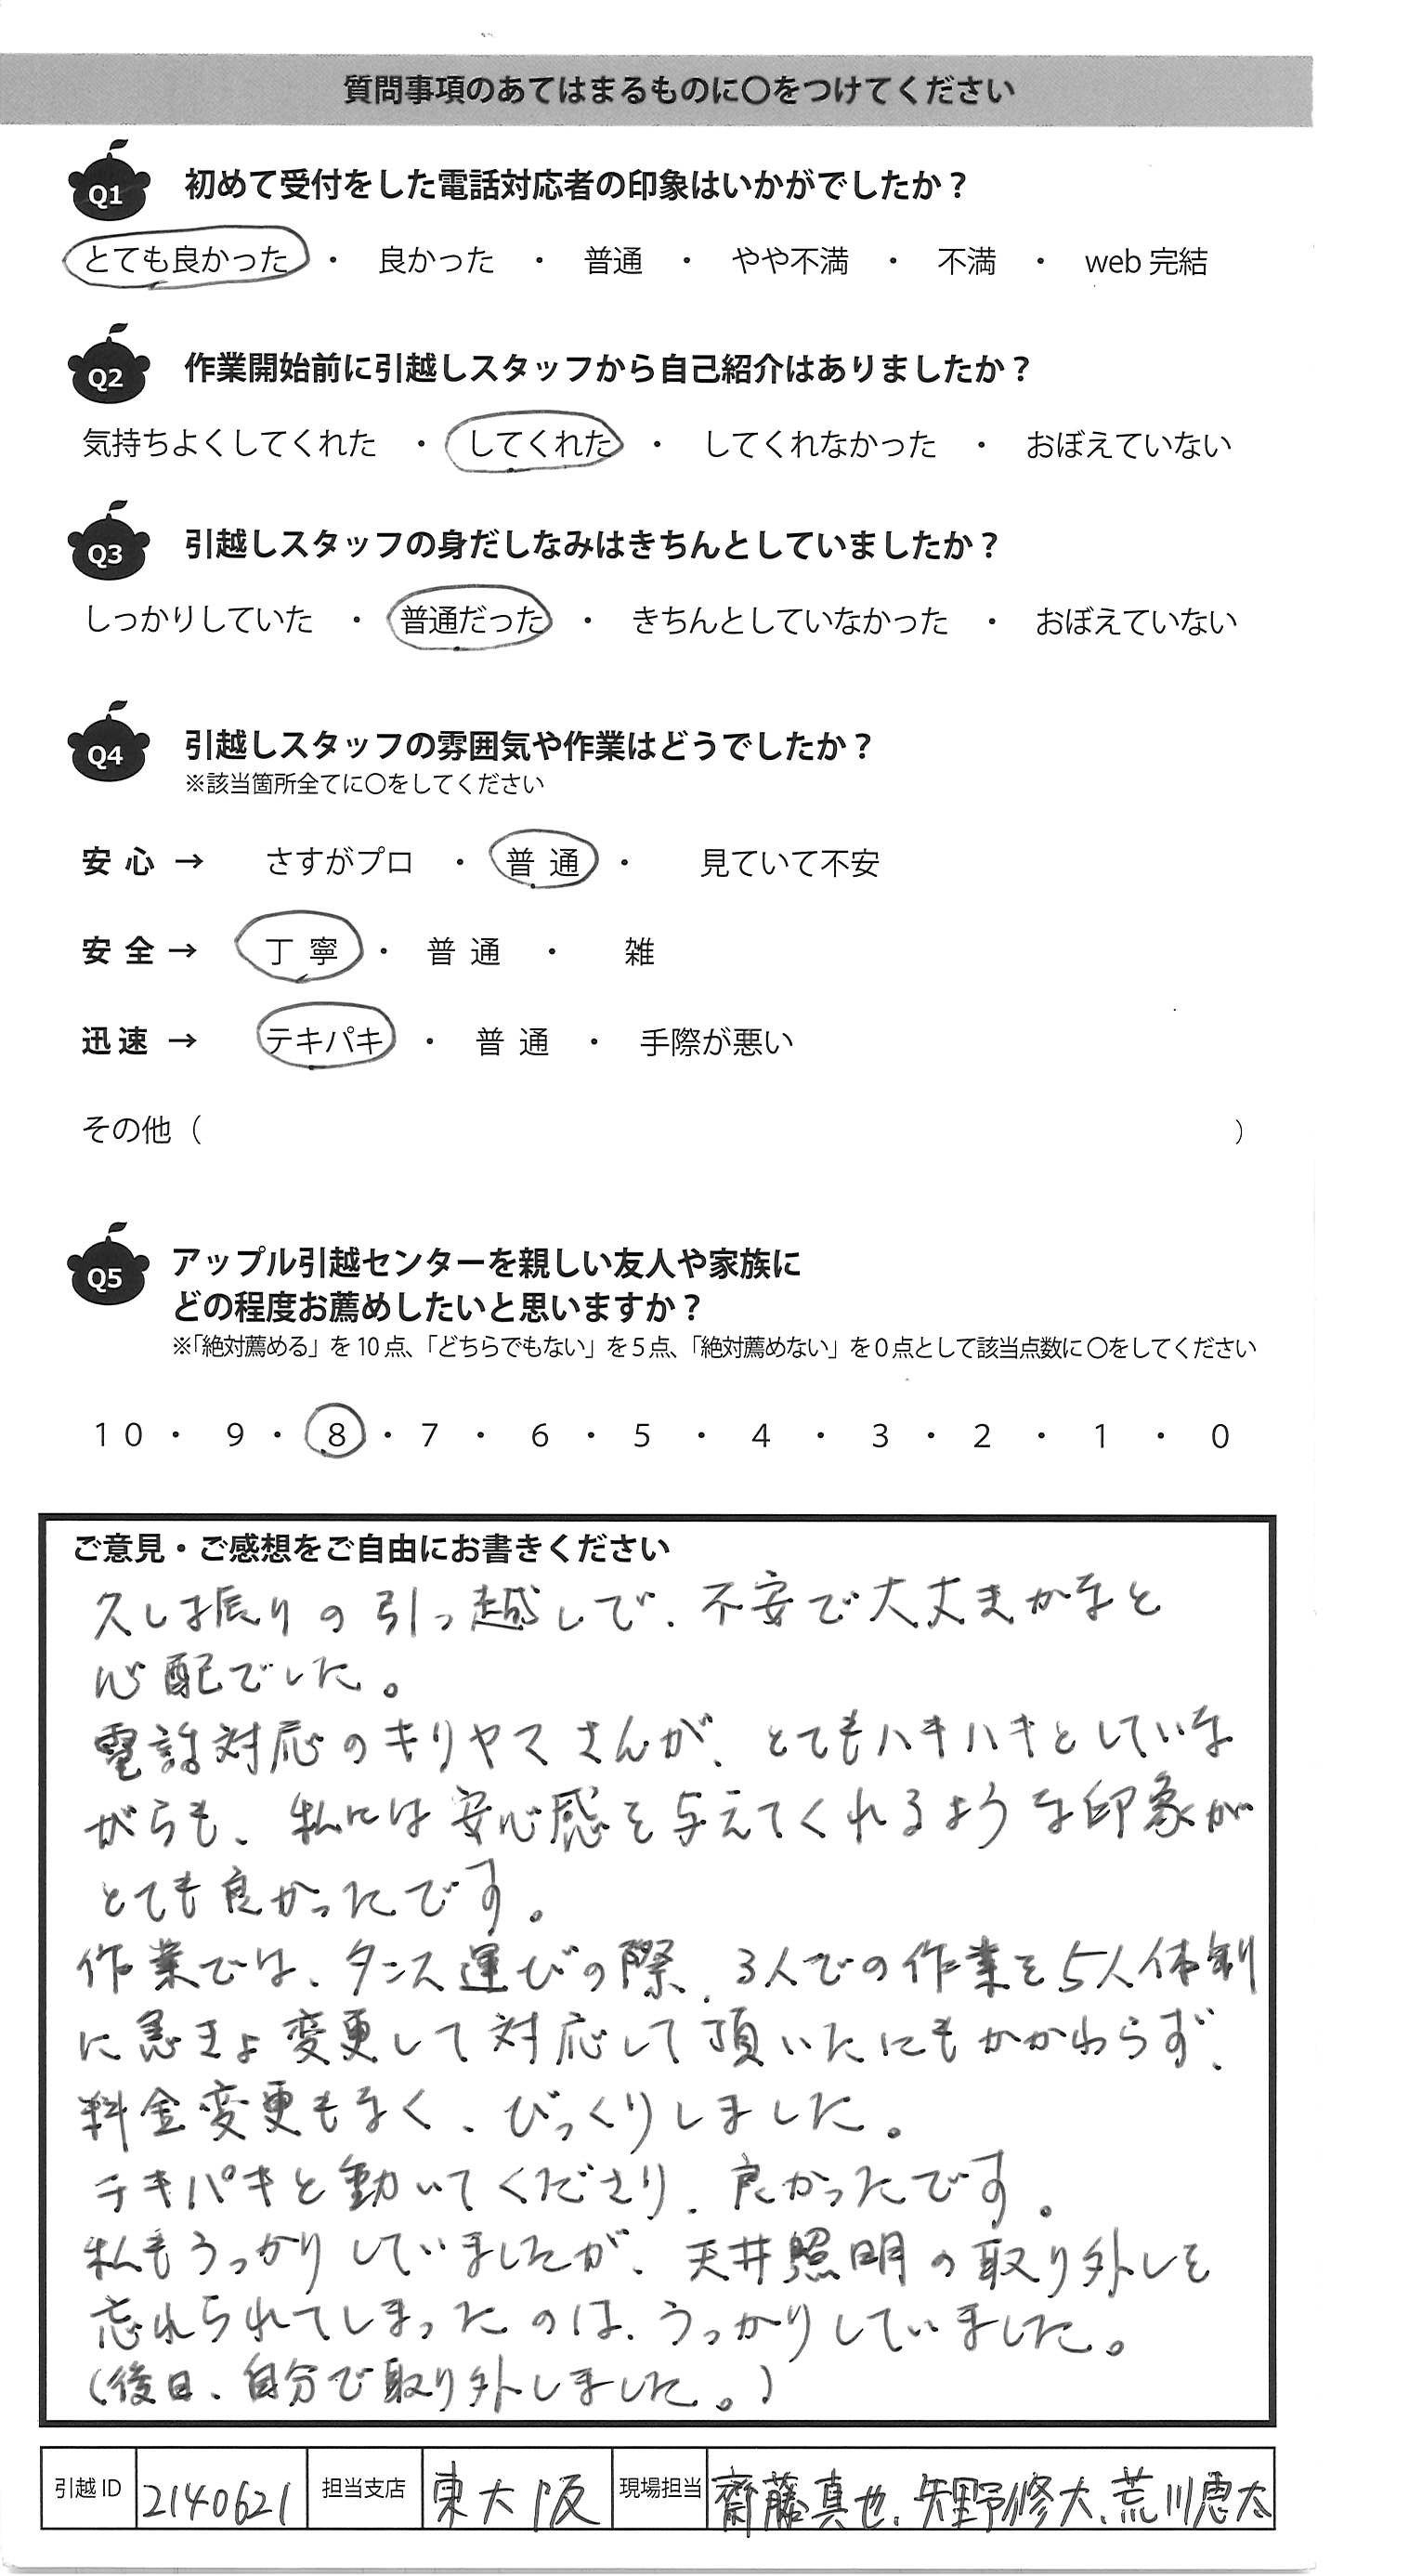 質問事項のあてはまるものに〇をつけてください
Q1 初めて受付をした電話対応者の印象はいかがでしたか？
とても良かった ・ 良かった ・ 普通 ・ やや不満 ・ 不満 ・ web 完結
Q2 作業開始前に引越しスタッフから自己紹介はありましたか？
気持ちよくしてくれた ・ してくれた ・ してくれなかった ・ おぼえていない
Q3 引越しスタッフの身だしなみはきちんとしていましたか？
しっかりしていた ・ 普通だった ・ きちんとしていなかった ・ おぼえていない
Q4 引越しスタッフの雰囲気や作業はどうでしたか？
※該当箇所全てに〇をしてください
安心 → さすがプロ ・ 普通 ・ 見ていて不安
安全 → 丁寧 ・ 普通 ・ 雑
迅速 → テキパキ ・ 普通 ・ 手際が悪い
その他（ ）
Q5 アップル引越センターを親しい友人や家族に
どの程度お薦めしたいと思いますか？
※「絶対薦める」を 10 点、「どちらでもない」を 5 点、「絶対薦めない」を 0 点として該当点数に〇をしてください
10 ・ 9 ・ 8 ・ 7 ・ 6 ・ 5 ・ 4 ・ 3 ・ 2 ・ 1 ・ 0
ご意見・ご感想をご自由にお書きください
久しば振りの引っ越しで、不安で大丈夫かなと
心配でした。
電話対応のキリヤマさんが、とてもハキハキとしていな
がらも、私には安心感を与えてくれるような印象が
とても良かったです。
作業では、タンス運びの際、3人での作業を5人体制
に急きょ変更して対応して頂いたにもかかわらず、
料金変更もなく、びっくりしました。
テキパキと動いてくださり、良かったです。
私もうっかりしていましたが、天井照明の取り外しを
忘れられてしまったのは、うっかりしていました。
（後日、自分で取り外しました。）
引越 ID 2140621 担当支店 東大阪 現場担当 齋藤真也、矢野修大、荒川恵太